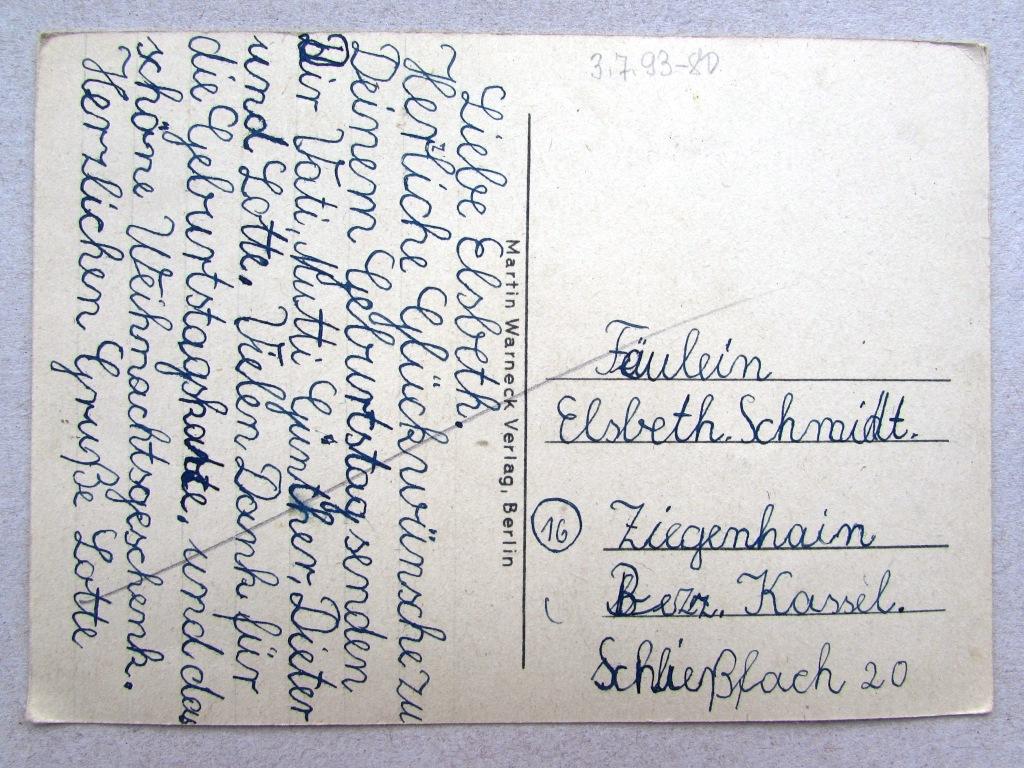 Liebe Elsbeth.
Herzliche Glückwünsche zu
Deinem Geburtstag senden
Dir Vati, Mutti Günther, Dieter
und Lotte. Vielen Dank für
die Geburtstagskarte, und das
schöne Weihnachtsgeschenk.
Herzlichen Gruße Lotte
Martin Warneck Verlag, Berlin
3.7.93-80
Fäulein
Elsbeth. Schmidt.
16 Ziegenhain
Bez. Kassel.
Schließfach 20